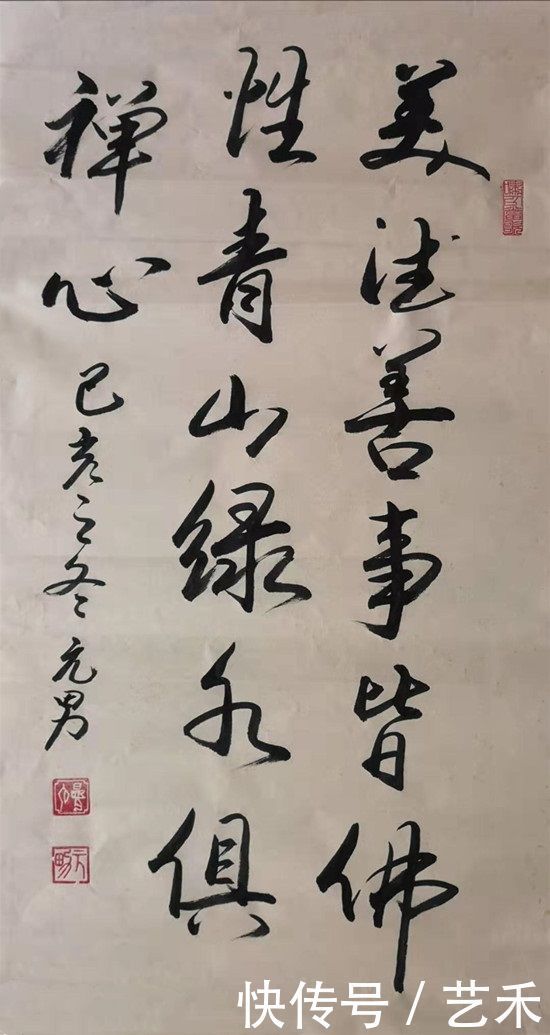 美德善事皆佛
性青山绿水俱
禅心
己亥之冬元男
快传号 / 艺禾